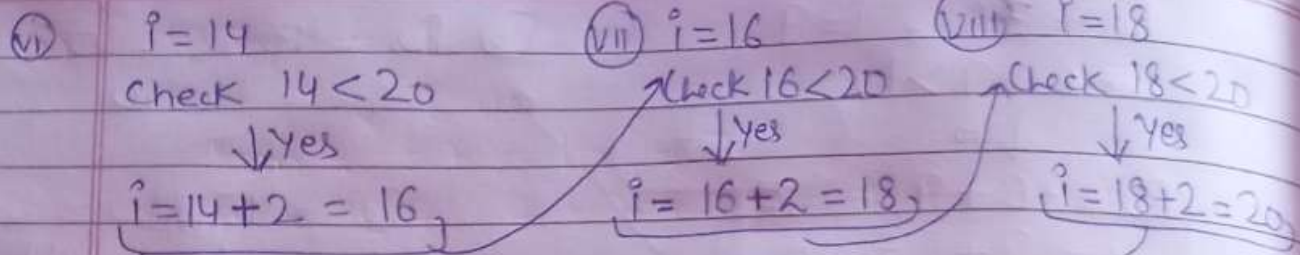 (vi) i=14
Check 14<20
↓ Yes
i=14+2 = 16
(vii) i=16
Check 16<20
↓ Yes
i= 16+2 = 18
(viii) i=18
Check 18<20
↓ Yes
i=18+2=20